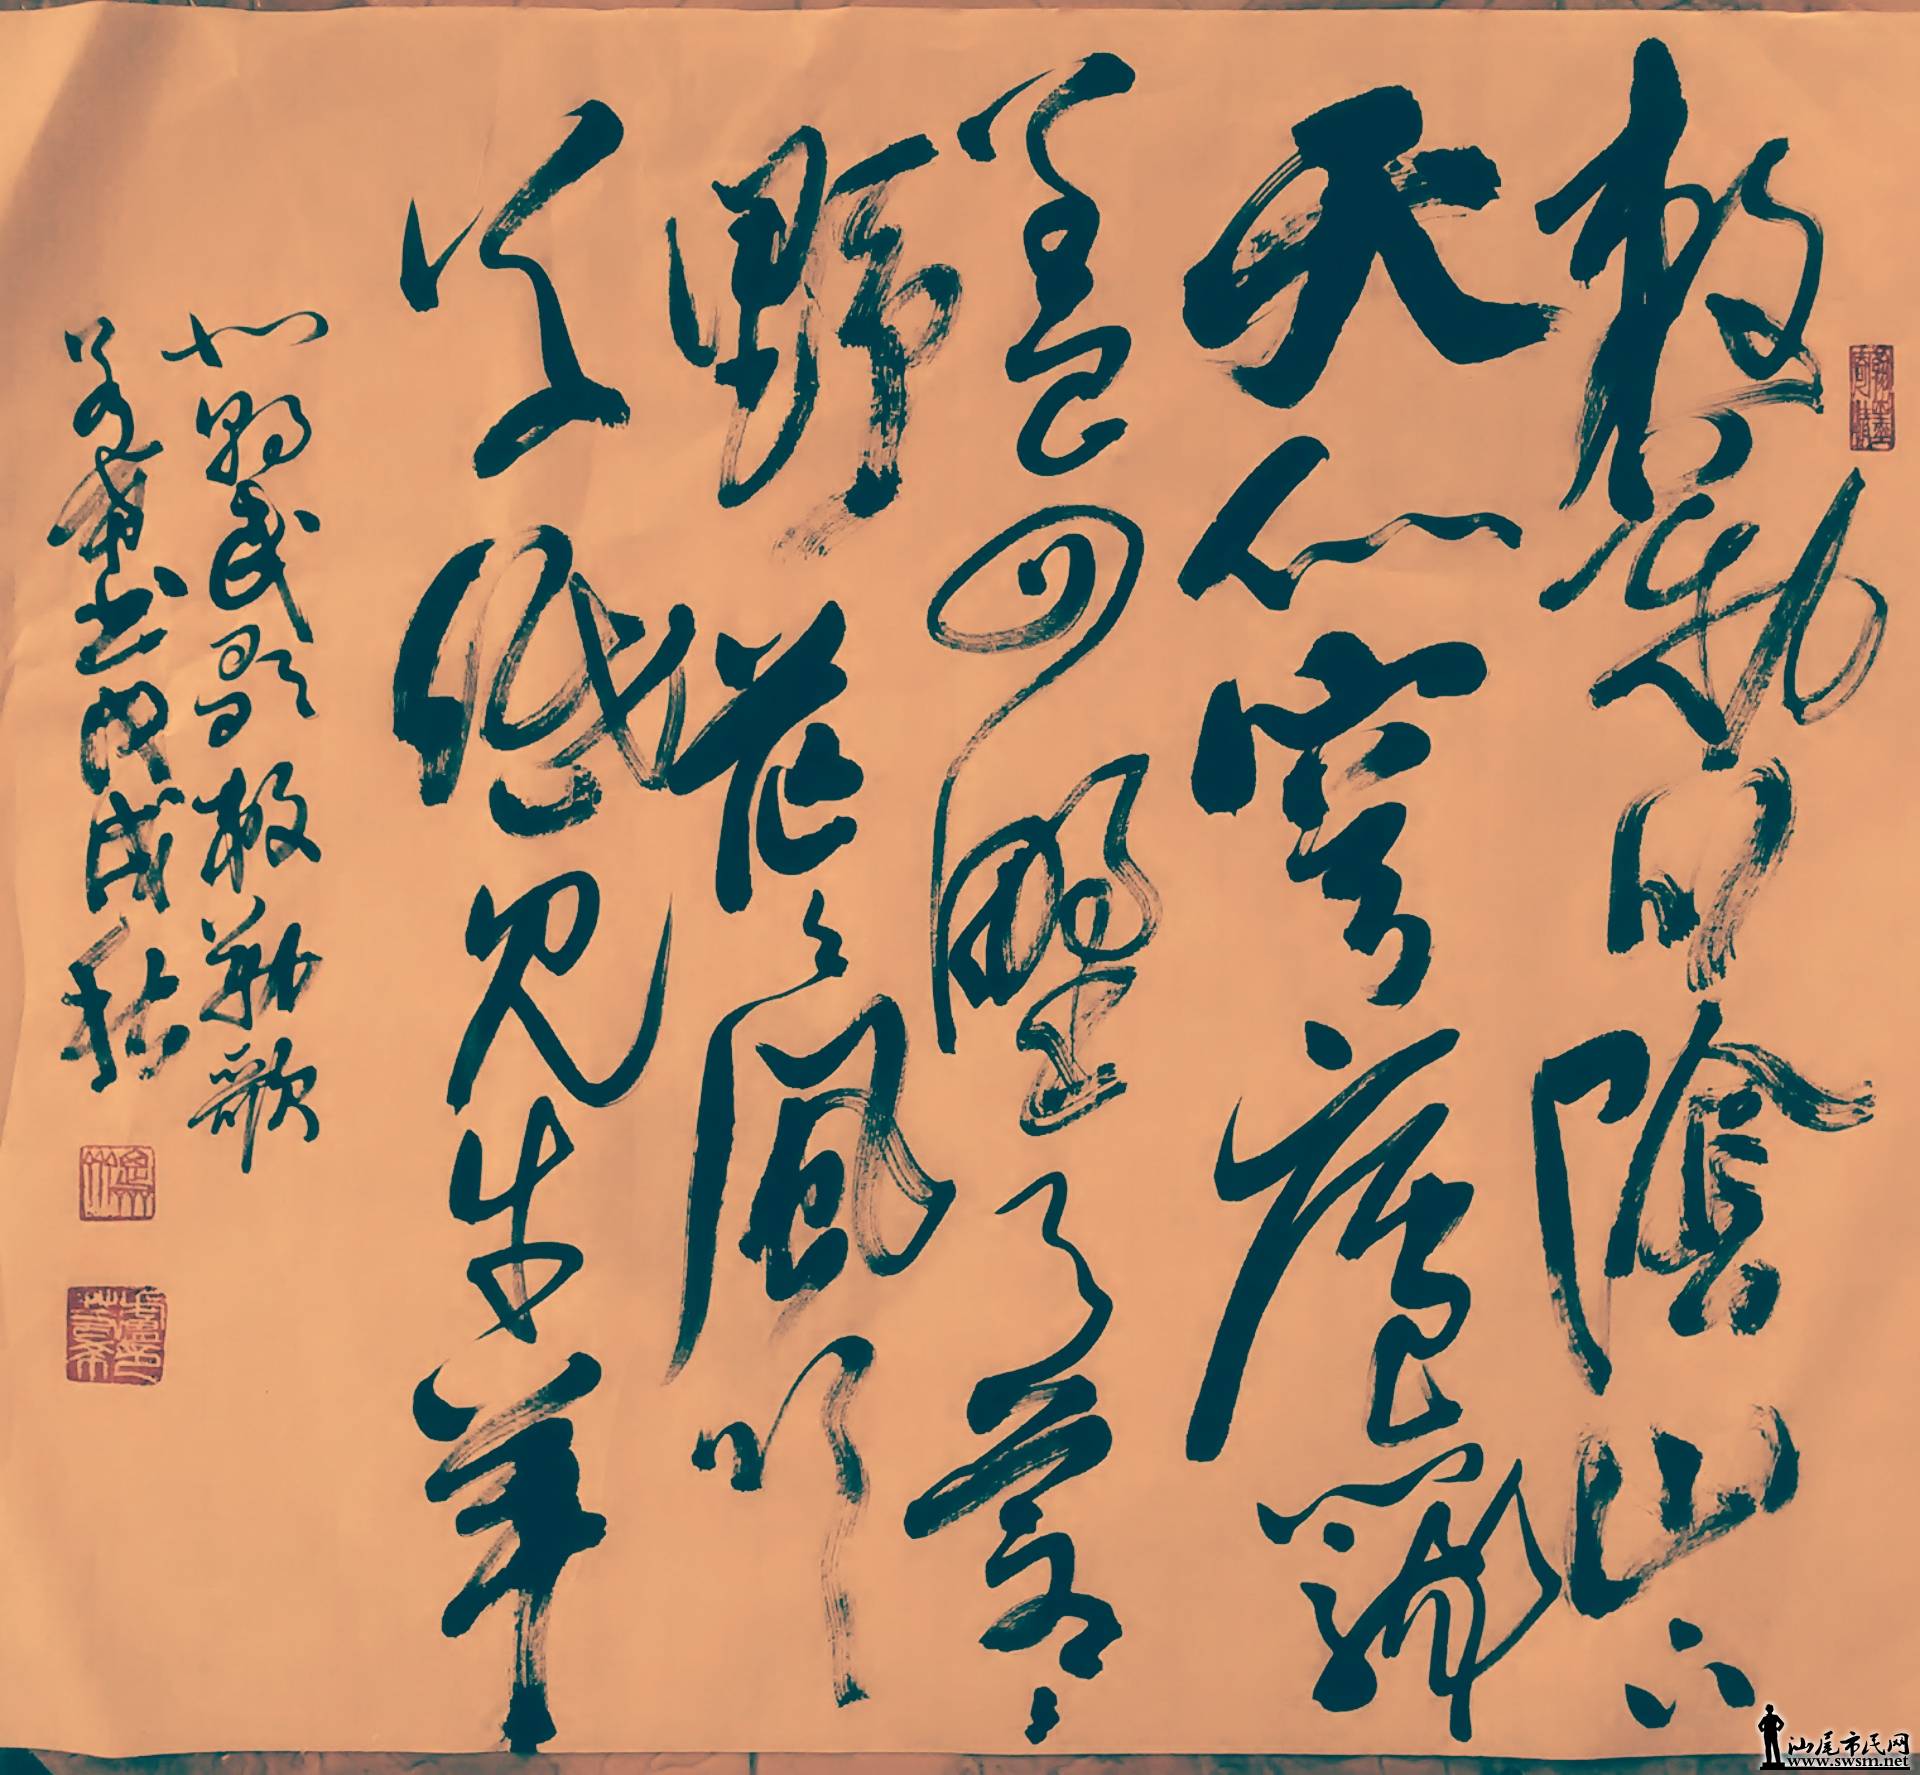 敕勒川陰山下
天似穹廬籠
蓋四野天蒼蒼
野茫茫風吹
草低見牛羊
北朝民歌敕勒歌
書戊戌秋
汕尾市民网
www.swsm.net